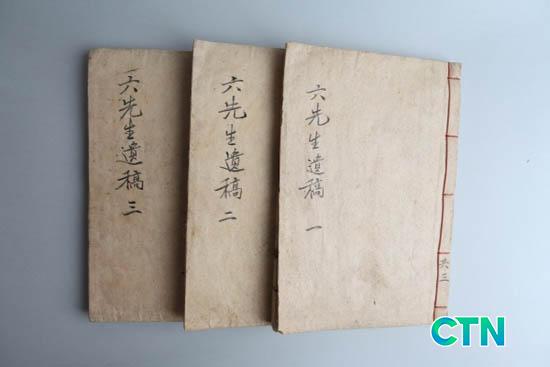 六先生遺稿 一
共三
六先生遺稿 二
六先生遺稿 三
CTN